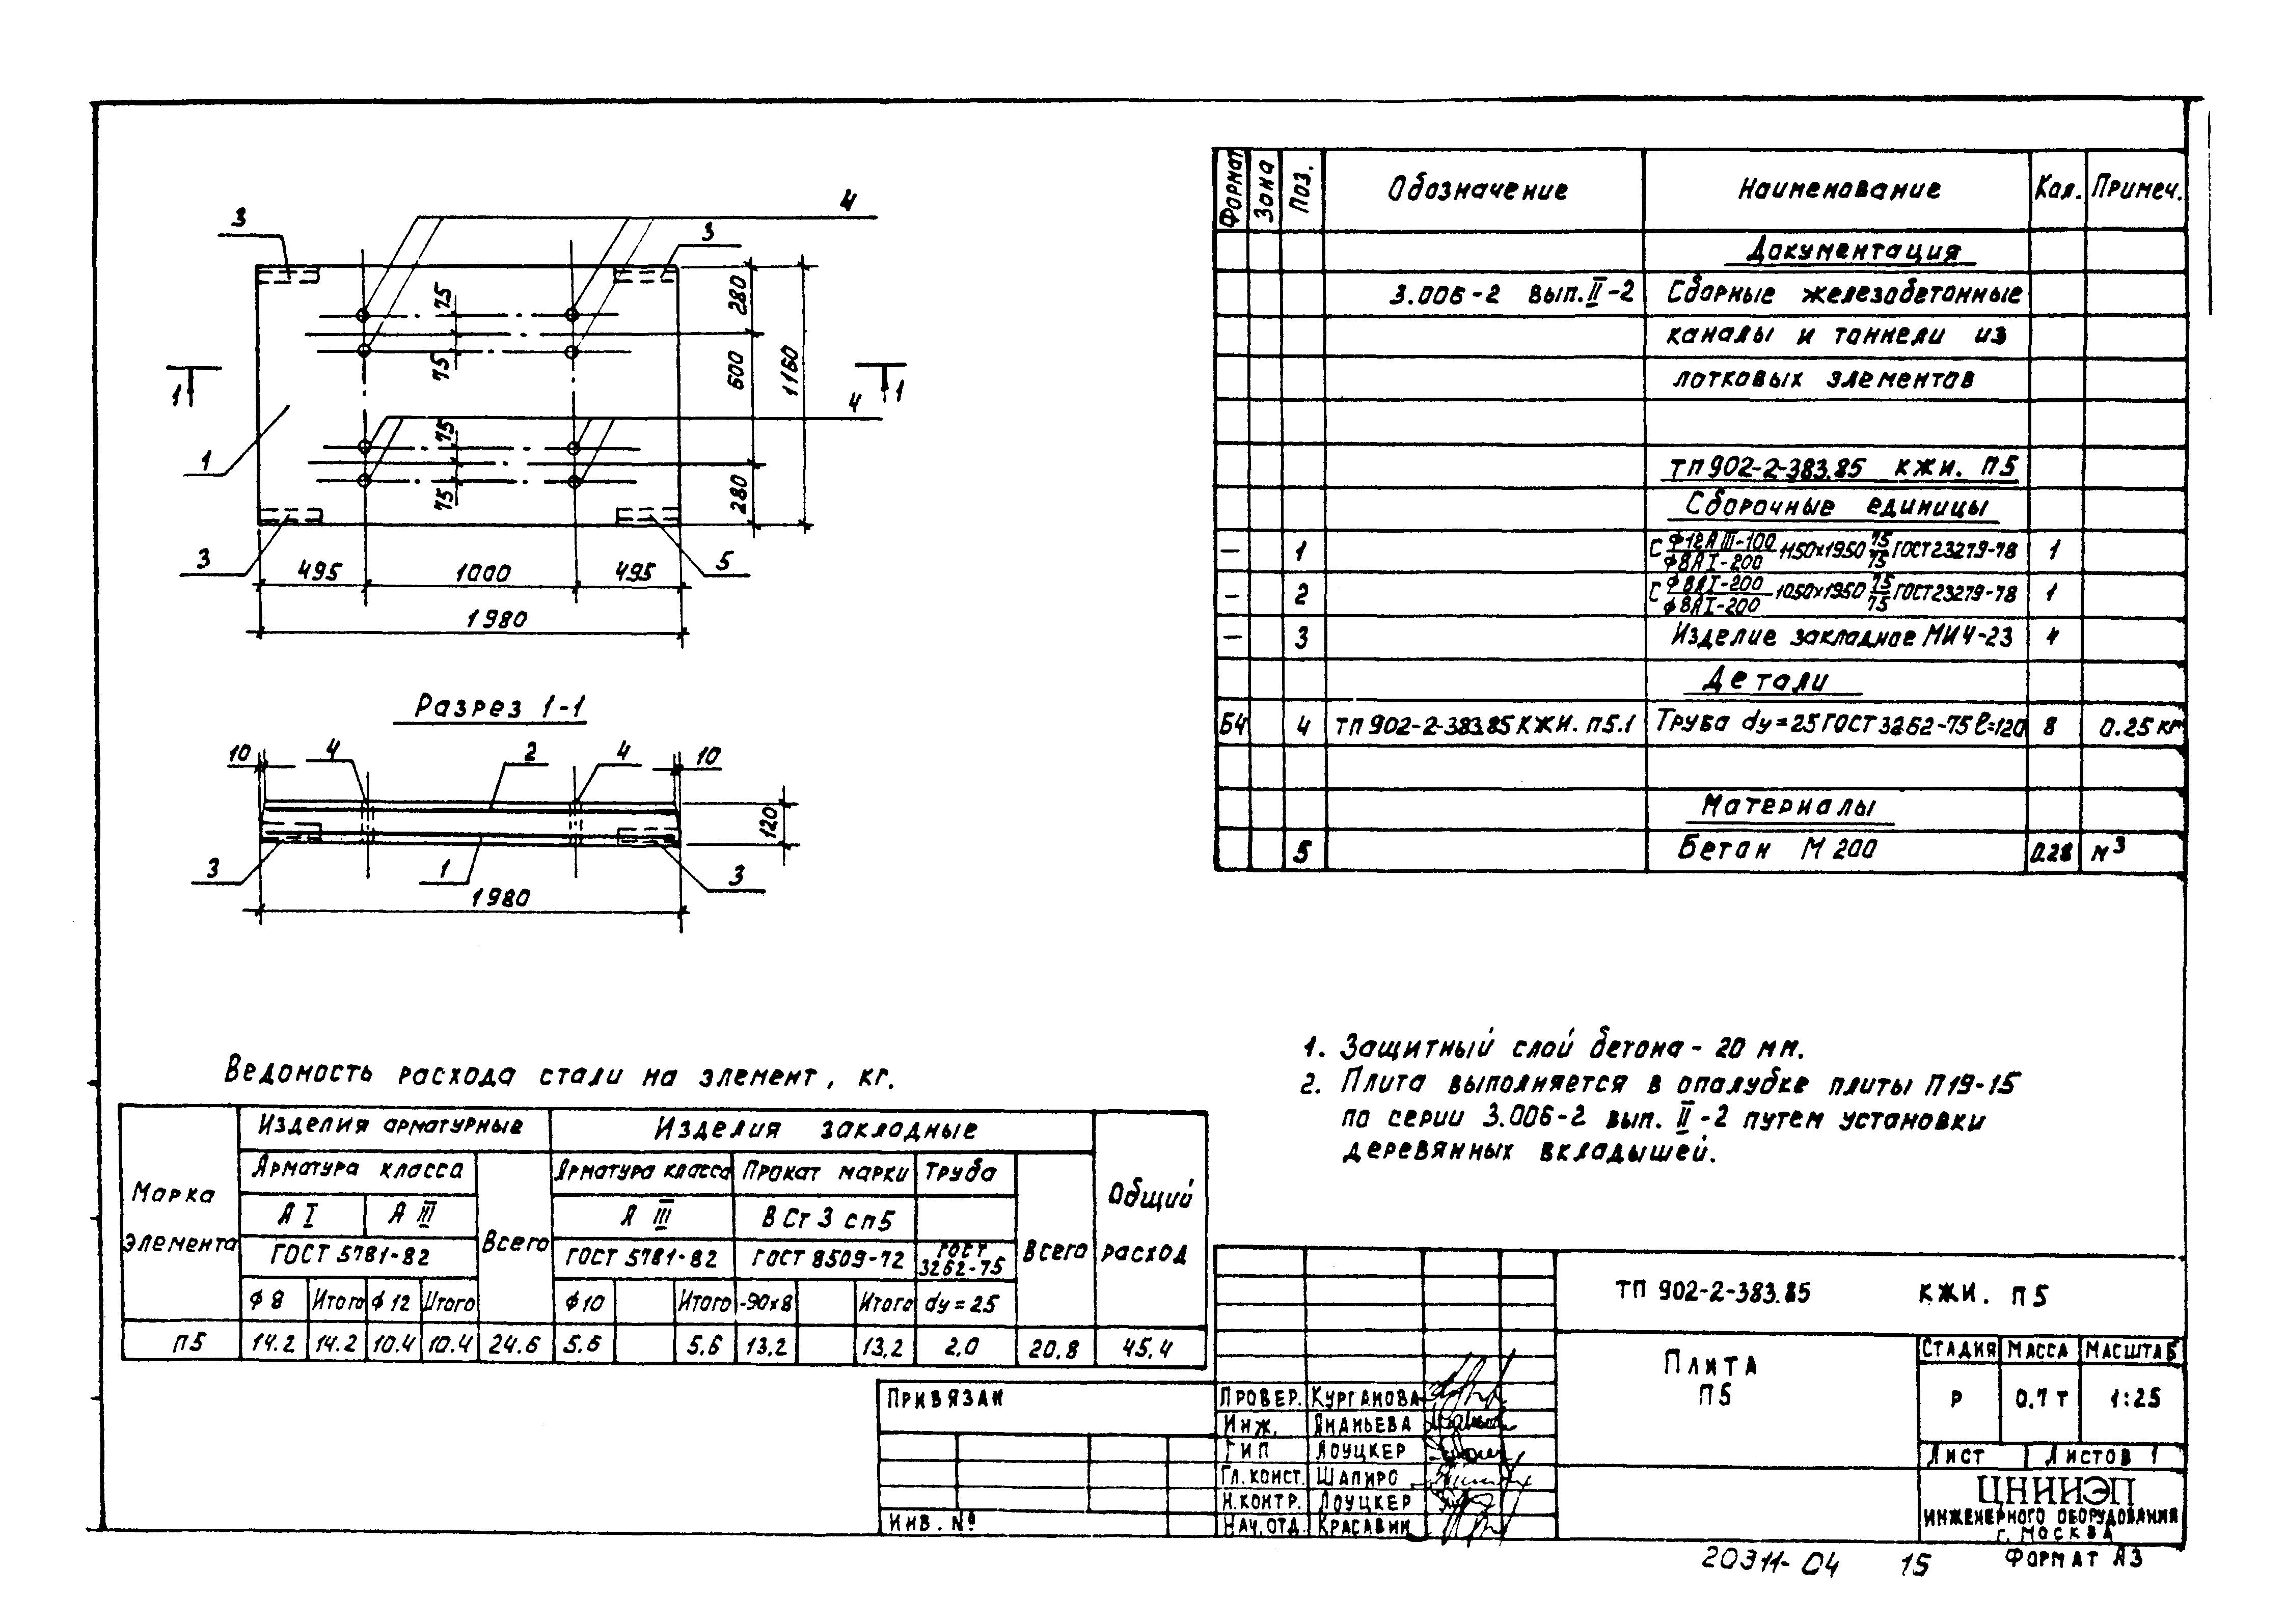 3
4
3
1
1
4
1
3
5
75
75
75
75
280
600
280
1160
495
1000
495
1980
Разрез 1-1
10
4
2
4
10
120
3
1
3
1980
Формат Зона Поз. Обозначение Наименование Кол. Примеч.
Документация
3.006-2 вып. II-2 Сборные железобетонные
каналы и тоннели из
лотковых элементов
ТП 902-2-383.85 КЖИ. П5
Сборочные единицы
— 1 С Ф12АIII-100/Ф8АI-200 1150х1950 75/75 ГОСТ 23279-78 1
— 2 С Ф8АI-200/Ф8АI-200 1050х1950 75/75 ГОСТ 23279-78 1
— 3 Изделие закладное МИ4-23 4
Детали
Б4 4 ТП 902-2-383.85 КЖИ. П5.1 Труба dу=25 ГОСТ 3262-75 ℓ=120 8 0.25 кг
Материалы
5 Бетон М 200 0.28 м³
1. Защитный слой бетона - 20 мм.
2. Плита выполняется в опалубке плиты П19-15
по серии 3.006-2 вып. II-2 путем установки
деревянных вкладышей.
Ведомость расхода стали на элемент, кг.
Марка элемента
Изделия арматурные Изделия закладные
Общий расход
Арматура класса Всего Арматура класса Прокат марки Труба Всего
А I А III А III В Ст 3 сп5
ГОСТ 5781-82 ГОСТ 5781-82 ГОСТ 8509-72 ГОСТ 3262-75
ф 8 Итого ф 12 Итого ф10 Итого -90х8 Итого dу=25
П5 14.2 14.2 10.4 10.4 24.6 5.6 5.6 13.2 13.2 2,0 20.8 45.4
ТП 902-2-383.85 КЖИ. П5
Плита
П5
Стадия Масса Масштаб
Р 0.7 т 1:25
Лист Листов 1
ЦНИИЭП
инженерного оборудования
г. Москва
Привязан
Инв. №
Провер. Курганова
Инж. Ананьева
ГИП Лоуцкер
Гл. конст. Шапиро
Н.контр. Лоуцкер
Нач.отд. Красавин
20311-04 15
Формат А3